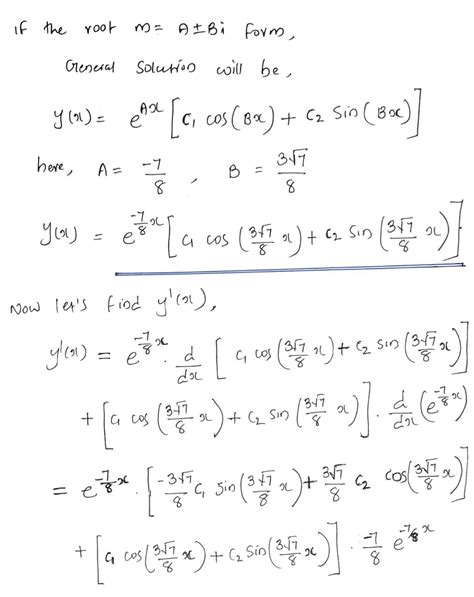 if the root m = A±Bi form,
General Solution will be,
y(x) = e^{Ax} [c₁ cos(Bx) + c₂ sin(Bx)]
here, A = -7/8 , B = 3√7/8
y(x) = e^{-7/8 x} [c₁ cos(3√7/8 x) + c₂ sin(3√7/8 x)]
Now let's find y'(x),
y'(x) = e^{-7/8 x} · d/dx [c₁ cos(3√7/8 x) + c₂ sin(3√7/8 x)]
+ [c₁ cos(3√7/8 x) + c₂ sin(3√7/8 x)] · d/dx (e^{-7/8 x})
= e^{-7/8 x} · [-3√7/8 c₁ sin(3√7/8 x) + 3√7/8 c₂ cos(3√7/8 x)]
+ [c₁ cos(3√7/8 x) + c₂ sin(3√7/8 x)] · -7/8 e^{-7/8 x}